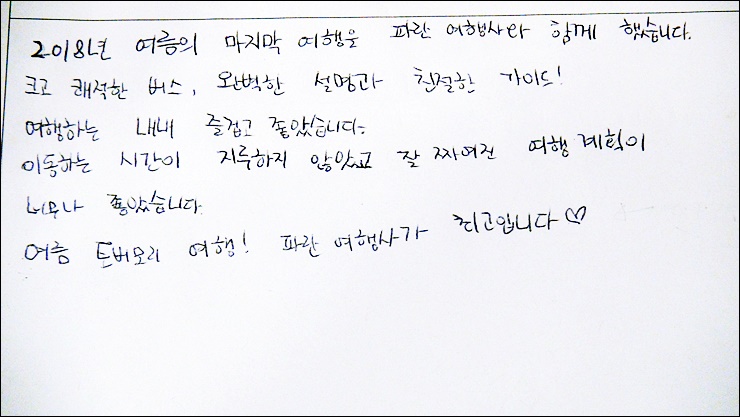 2018년 여름의 마지막 여행을 파란 여행사와 함께 했습니다.
크고 쾌적한 버스, 완벽한 설명과 친절한 가이드!
여행하는 내내 즐겁고 좋았습니다.
이동하는 시간이 지루하지 않았고 잘 짜여진 여행 계획이
너무나 좋았습니다.
여름 토버모리 여행! 파란 여행사가 최고입니다♡